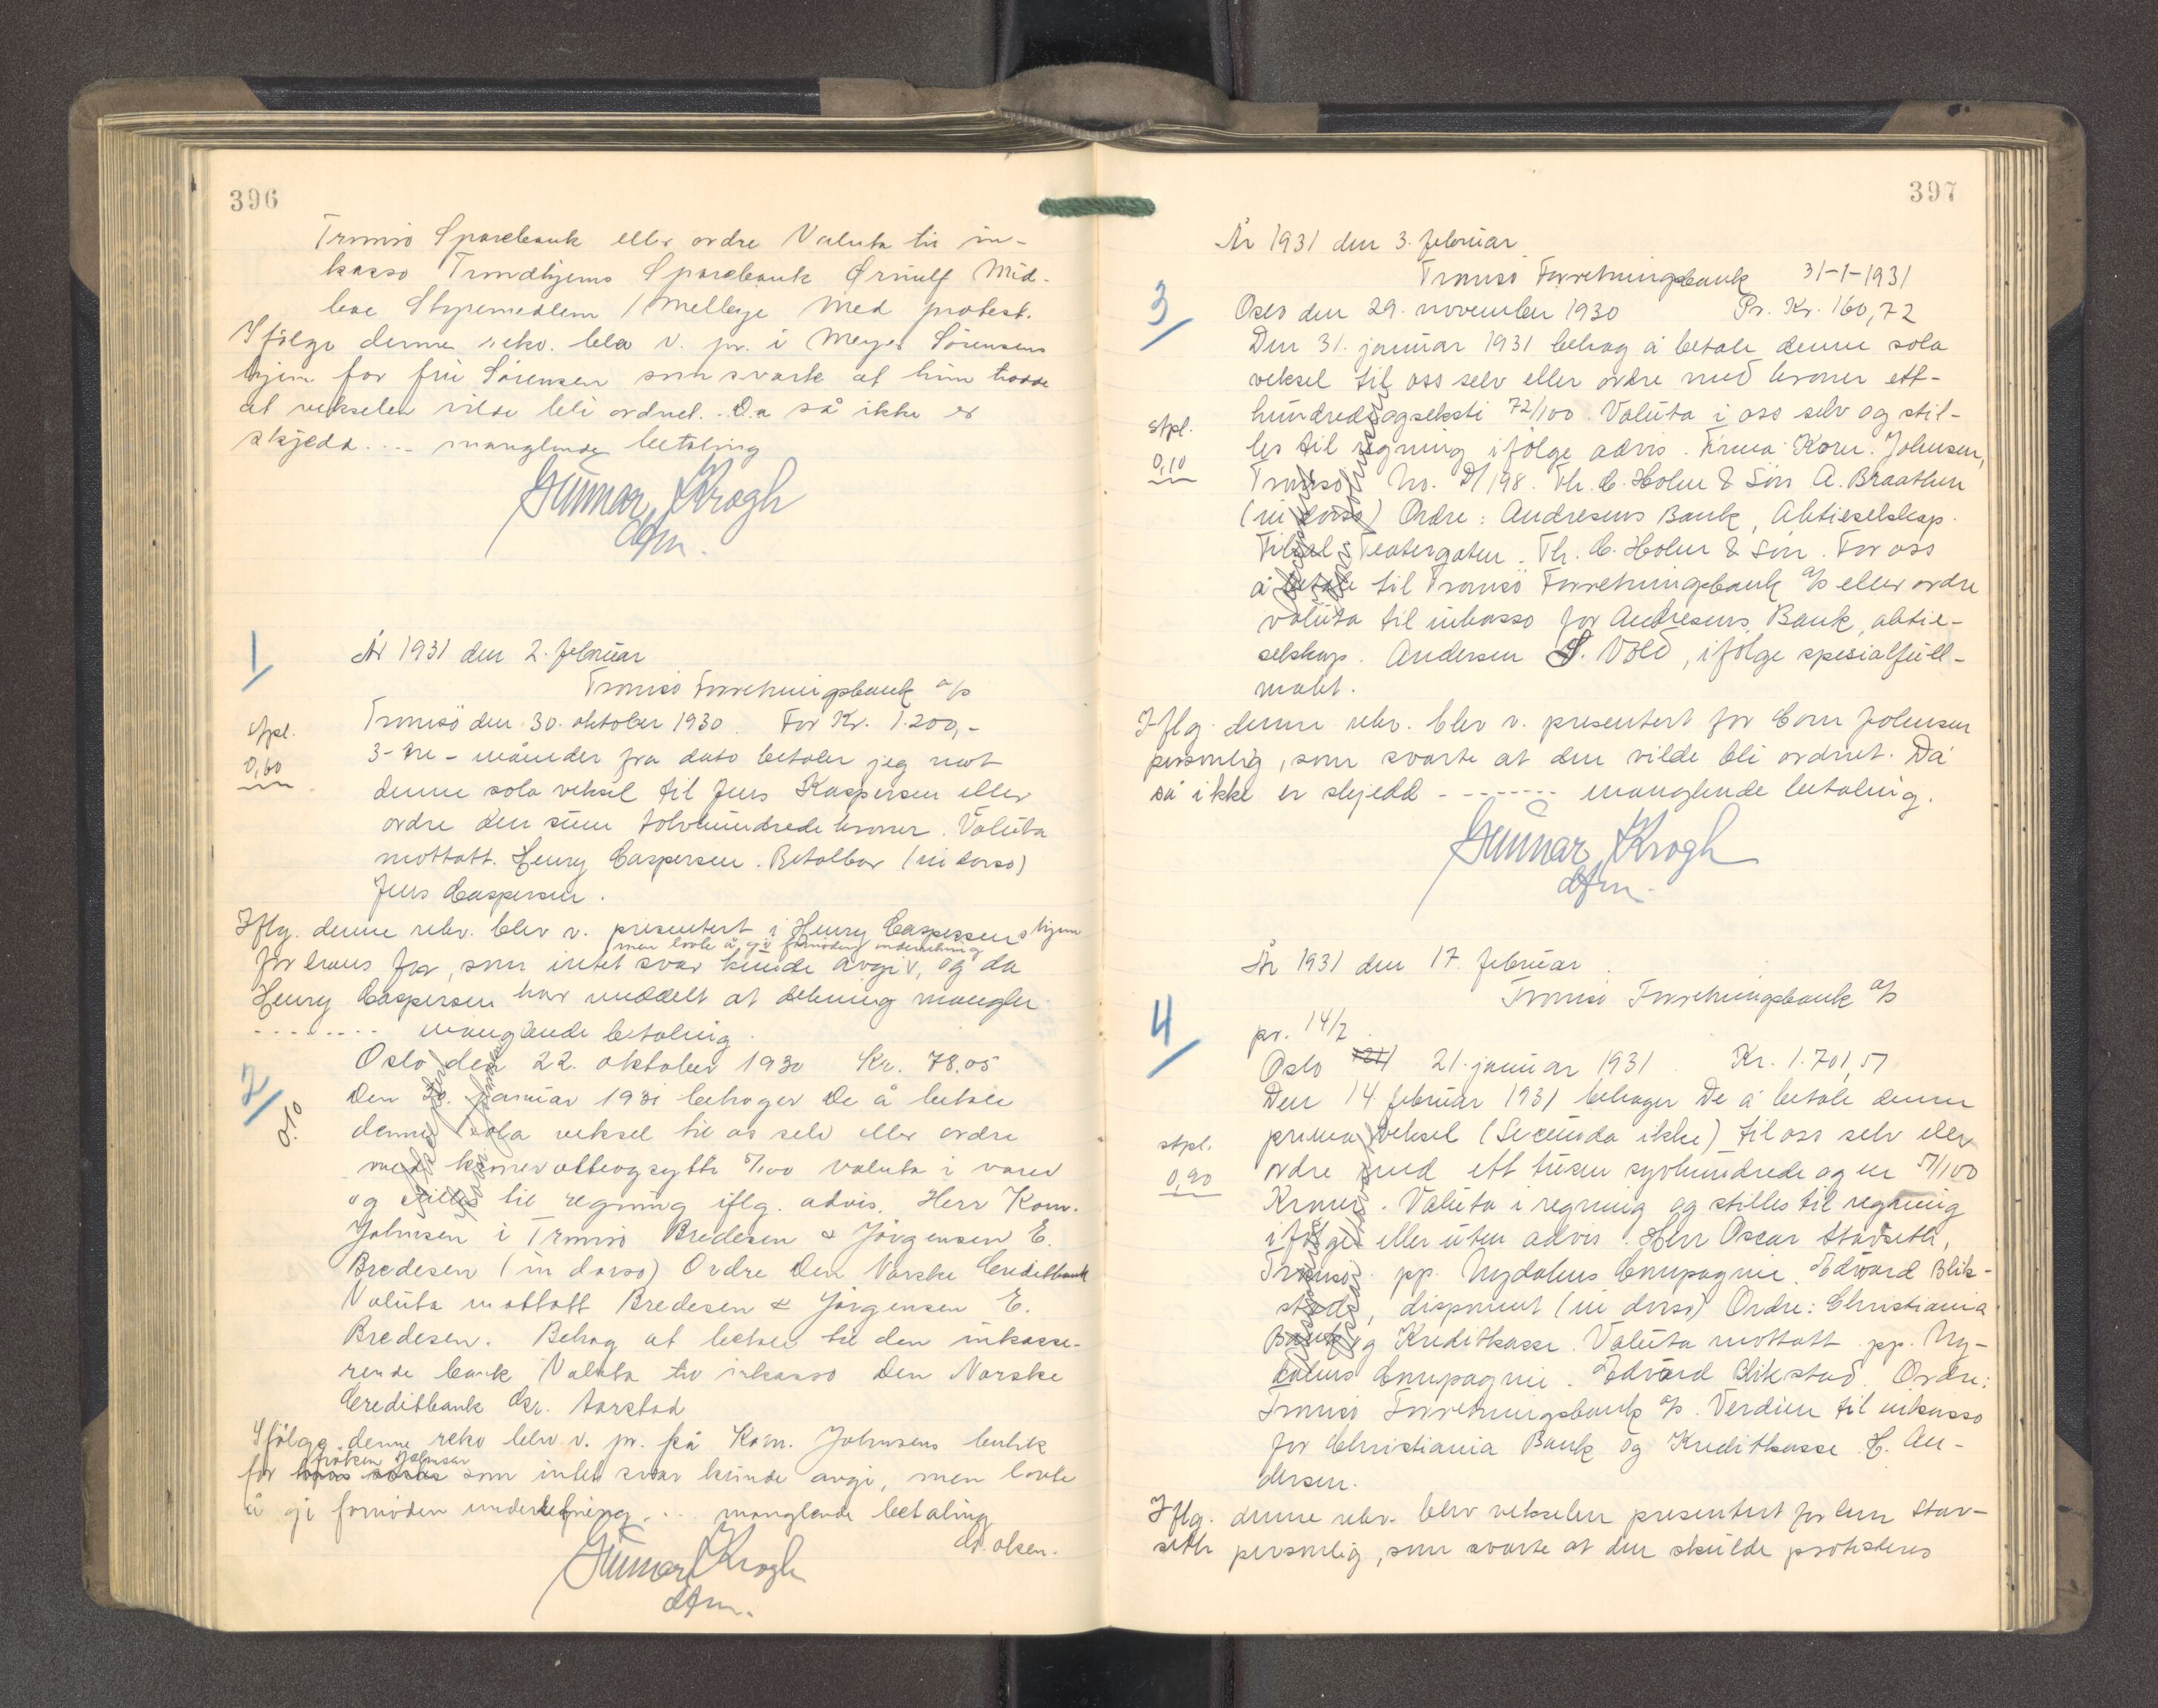 396
Tromsö Sparebank eller ordre Valuta til in-
kasso Trondhjems Sparebank Ørnulf Mid-
Styremedlem / Mellbye Med protest.
Ifölge denne rekv. blev v. pr. i Meyer Sörensens
hjem for fru Sörensen som svarte at hun trodde
at vekselen vilde bli ordnet. Da så ikke er
skjedd .... manglende betaling
Gunnar Krogh
dfm.
1
År 1931 den 2. februar
Tromsö Forretningsbank a/s
stpl.
0,60
Tromsö den 30. oktober 1930. For Kr. 1.200,-
3- tre - måneder fra dato betaler jeg mot
denne sola veksel til Jens Kaspersen eller
ordre den sum tolvhundrede kroner. Valuta
mottatt. Henry Caspersen. Betalbar (in dorso)
Jens Caspersen.
Iflg. denne rekv. blev v. presentert i Henry Caspersens hjem
men lovte å gi fornöden underretning
for hans far, som intet svar kunde avgi v, og da
Henry Caspersen har meddelt at dekning mangler
--------- manglende betaling.
2
0.10
Oslo den 22. oktober 1930 Kr. 78.05
Den 30. januar 1931 behager De å betale
denne sola veksel til os selv eller ordre
med kroner otteogsytti 5/100 Valuta i varer
og stilles til regning iflg. advis. Herr Korn.
Johnsen i Tromsö Bredesen & Jörgensen E.
Bredesen (in dorso) Ordre Den Norske Creditbank
Valuta mottatt Bredesen & Jörgensen E.
Bredesen. Behag at betale til den inkasse-
rende bank Valuta til inkasso Den Norske
Creditbank Aarstad
Ifölge denne rekv blev v. pr. på Korn. Johnsens butik
fröken Johnsen
for som intet svar kunde avgi, men lovte
å gi fornöden underretning. ... manglende betaling
olsen.
Gunnar Krogh
dfm.
397
År 1931 den 3. februar
Tromsö Forretningsbank 31-1-1931
3
Oslo den 29. november 1930 Pr. Kr. 160,72
Den 31. januar 1931 behag å betale denne sola
veksel til oss selv eller ordre med kroner ett-
hundredeogseksti 72/100. Valuta i oss selv og stil-
stpl.
0,10
les til regning ifölge advis. Firma Korn. Johnsen,
Tromsö. No. 21198. Th. C. Holm & Sön A. Braathen
(in dorso) Ordre: Andresens Bank, Aktieselskap.
Filial Teatergaten. Th. C. Holm & Sön. For oss
å betale til Tromsö Forretningsbank a/s eller ordre
valuta til inkasso for Andresens Bank, aktie-
selskap. Andersen S. Vold, ifölge spesialfull-
makt.
Iflg. denne rekv. blev v. presentert for Corn Johnsen
personlig, som svarte at den vilde bli ordnet. Da
så ikke er skjedd ------- manglende betaling.
Gunnar Krogh
dfm.
År 1931 den 17. februar.
Tromsö Forretningsbank a/s
4
pr. 14/2
Oslo 21. januar 1931. Kr. 1.701,51
Den 14 februar 1931 behager De å betale denne
prima veksel (Secunda ikke) til oss selv eller
stpl.
0,90
ordre med ett tusen syvhundrede og en 51/100
Kroner. Valuta i regning og stilles til regning
ifölge eller uten advis. Herr Oscar Stavseth,
Tromsö. pp. Nydalens Compagnie. Edvard Blik-
stad, disponent (in dorso) Ordre: Christiania
Bank og Kreditkasse. Valuta mottatt pp. Ny-
dalens Compagnie. Edvard Blikstad. Ordre:
Tromsö Forretningsbank a/s. Verdien til inkasso
for Christiania Bank og Kreditkasse H. An-
dersen.
Iflg. denne rekv. blev vekselen presentert for herr Stav-
seth personlig, som svarte at den skulde protesteres